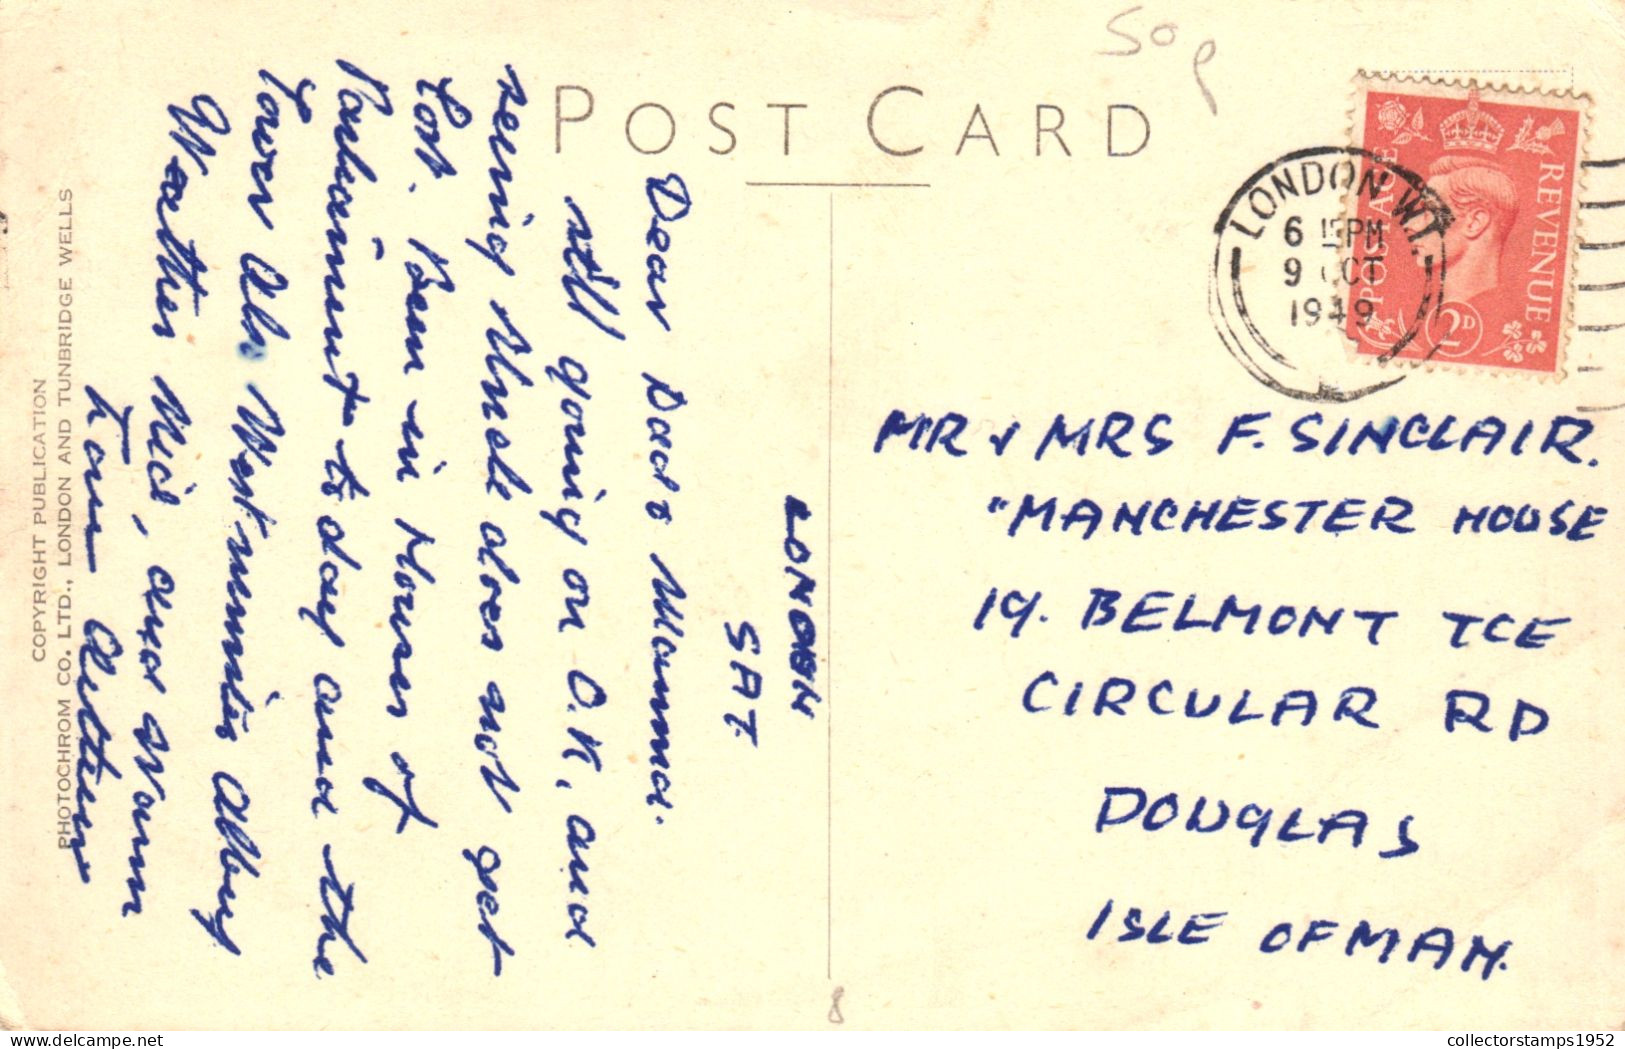 50p
POST CARD
LONDON
SAT
Dear Dad & Mamma.
Still going on O.K, and
seeing Uncle does not get
Lost. Been in Houses of
Parliament to day and the
Tower Also Westminster Abbey
Weather Nice, and warm
from Arthur
COPYRIGHT PUBLICATION
PHOTOCHROM CO. LTD., LONDON AND TUNBRIDGE WELLS
LONDON. W.1.
6 15PM
9 OCT
1949
POSTAGE
REVENUE
2D
MR & MRS F. SINCLAIR.
"MANCHESTER HOUSE
19. BELMONT TCE
CIRCULAR RD
DOUGLAS
ISLE OF MAN.
8
collectorstamps1952